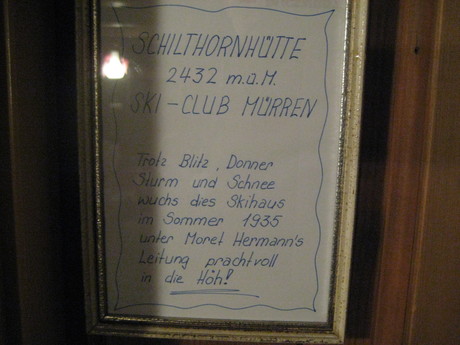 SCHILTHORNHÜTTE
2432 m.ü.M.
SKI-CLUB MÜRREN
Trotz Blitz, Donner
Sturm und Schnee
wuchs dies Skihaus
im Sommer 1935
unter Moret Hermann's
Leitung prachtvoll
in die Höh!